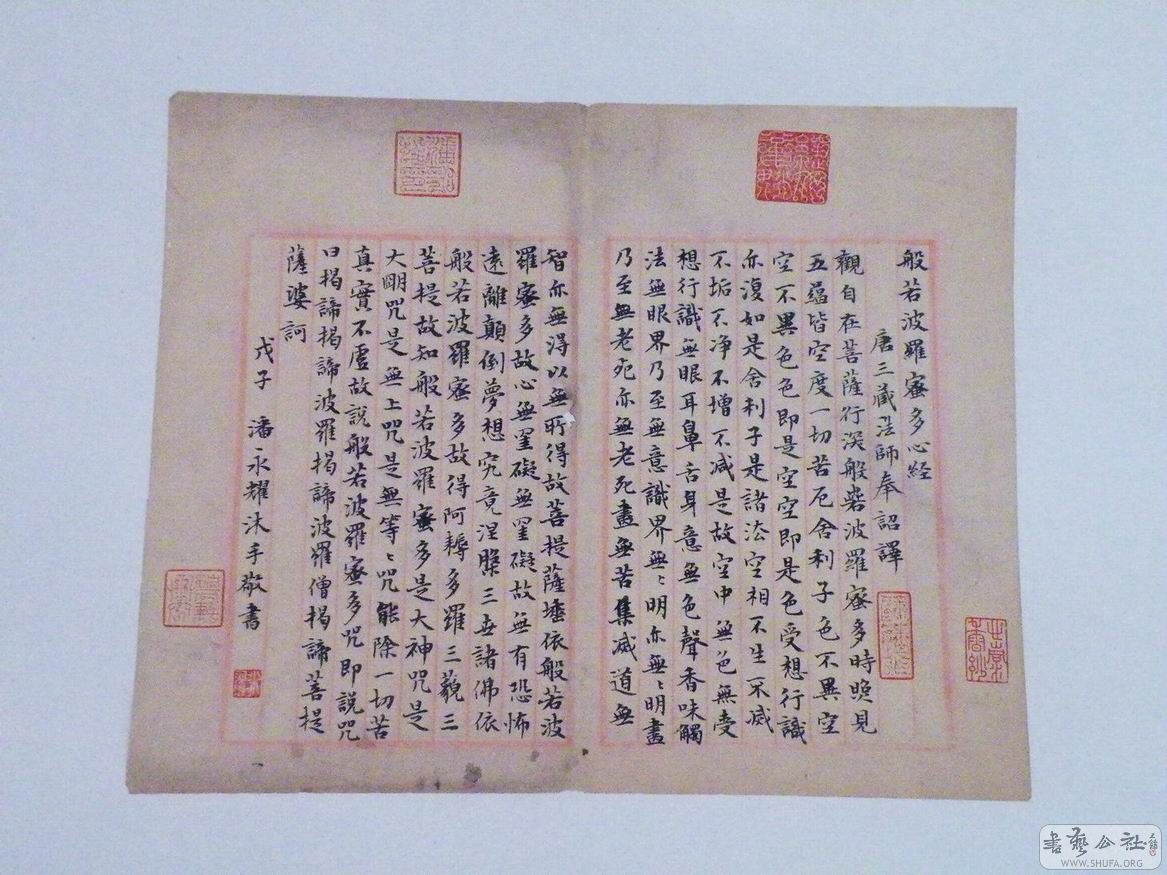 般若波羅蜜多心経
唐三藏法師奉詔譯
觀自在菩薩行深般若波羅蜜多時照見
五蘊皆空度一切苦厄舍利子色不異空
空不異色色即是空空即是色受想行識
亦復如是舍利子是諸法空相不生不滅
不垢不净不增不減是故空中無色無受
想行識無眼耳鼻舌身意無色聲香味觸
法無眼界乃至無意識界無〻明亦無〻明盡
乃至無老死亦無老死盡無苦集滅道無
智亦無得以無所得故菩提薩埵依般若波
羅蜜多故心無罣礙無罣礙故無有恐怖
遠離顛倒夢想究竟涅槃三世諸佛依
般若波羅蜜多故得阿耨多羅三藐三
菩提故知般若波羅蜜多是大神咒是
大明咒是無上咒是無等〻咒能除一切苦
真實不虛故說般若波羅蜜多咒即說咒
曰揭諦揭諦波羅揭諦波羅僧揭諦菩提
薩婆訶
戊子 潘永耀沐手敬書
書藝公社
WWW.SHUFA.ORG